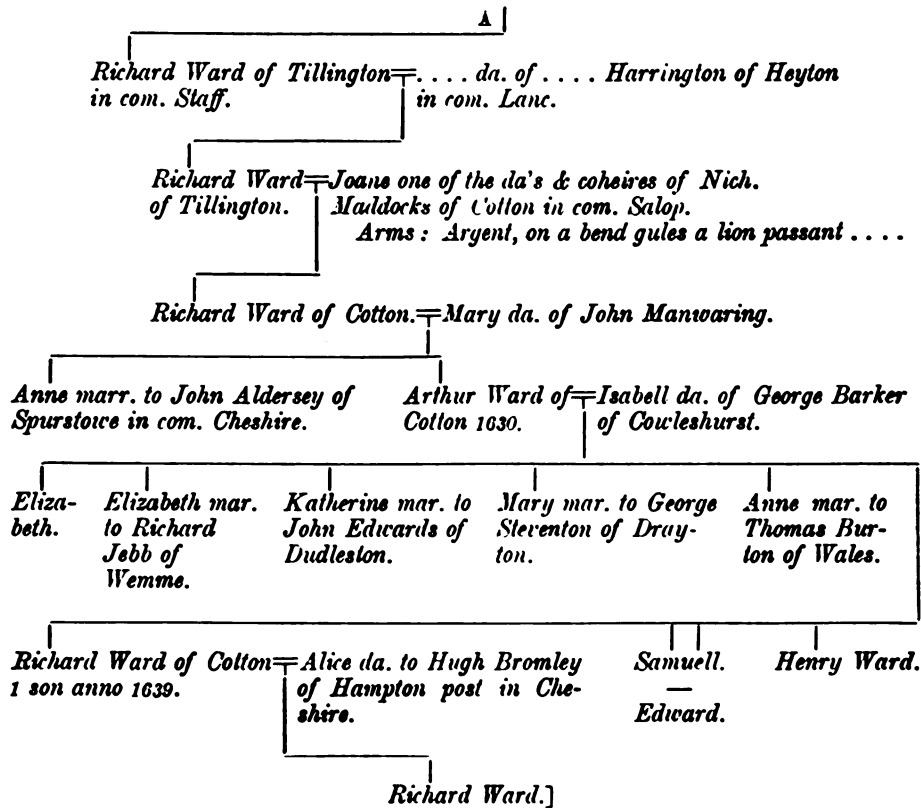 A
Richard Ward of Tillington=. . . . da. of . . . . Harrington of Heyton
in com. Staff. in com. Lanc.
Richard Ward=Joane one of the da's & coheires of Nich.
of Tillington. Maddocks of Cotton in com. Salop.
Arms : Argent, on a bend gules a lion passant . . . .
Richard Ward of Cotton.=Mary da. of John Manwaring.
Anne marr. to John Aldersey of
Spurstowe in com. Cheshire.
Arthur Ward of=Isabell da. of George Barker
Cotton 1630. of Cowleshurst.
Eliza-
beth.
Elizabeth mar.
to Richard
Jebb of
Wemme.
Katherine mar. to
John Edwards of
Dudleston.
Mary mar. to George
Steventon of Dray-
ton.
Anne mar. to
Thomas Bur-
ton of Wales.
Richard Ward of Cotton=Alice da. to Hugh Bromley
1 son anno 1639. of Hampton post in Che-
shire.
Samuell.
—
Edward.
Henry Ward.
Richard Ward.]